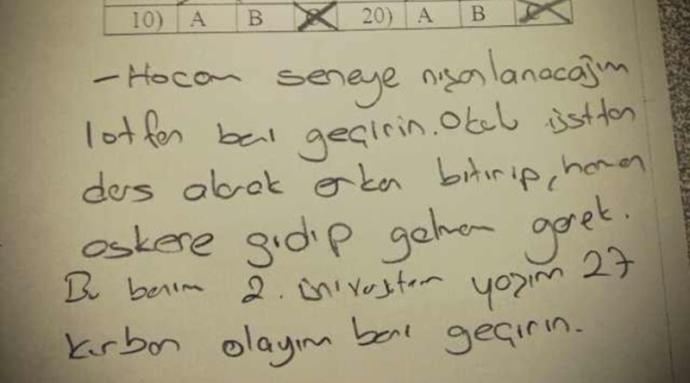 10) A B C 20) A B C
- Hocam seneye nişanlanacağım
lütfen beni geçirin. Okulu üstten
ders alarak erken bitirip, hemen
askere gidip gelmem gerek.
Bu benim 2. üniversitem yaşım 27
kurban olayım beni geçirin.